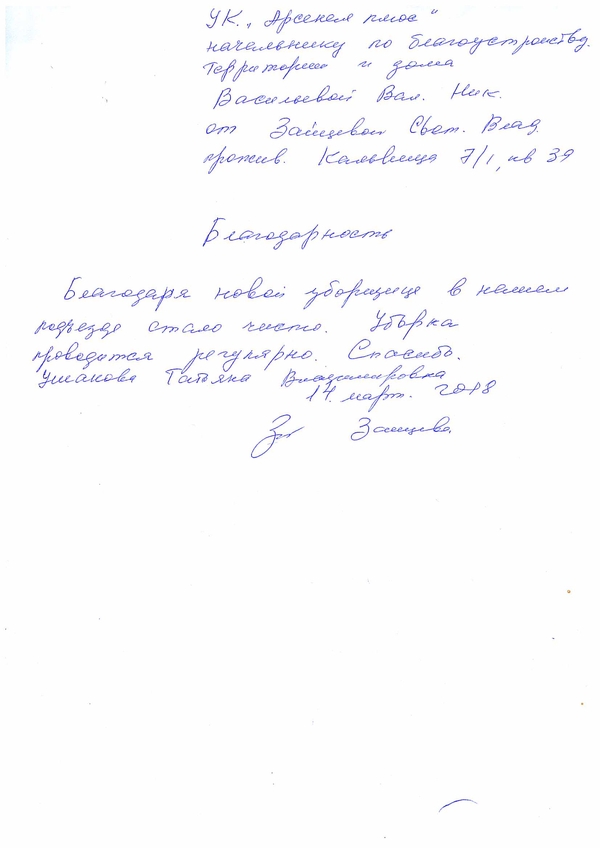 УК. „Арсенал плюс“
начальнику по благоустройству
территории и дома
Васильевой Вал. Ник.
от Зайцевой Свет. Влад.
прожив. 7/1, кв 39
Благодарность
Благодаря новой уборщице в нашем
подъезде стало чисто. Уборка
проводится регулярно. Спасибо.
Ушакова Татьяна Владимировна
14 март. 2018
Зайцева